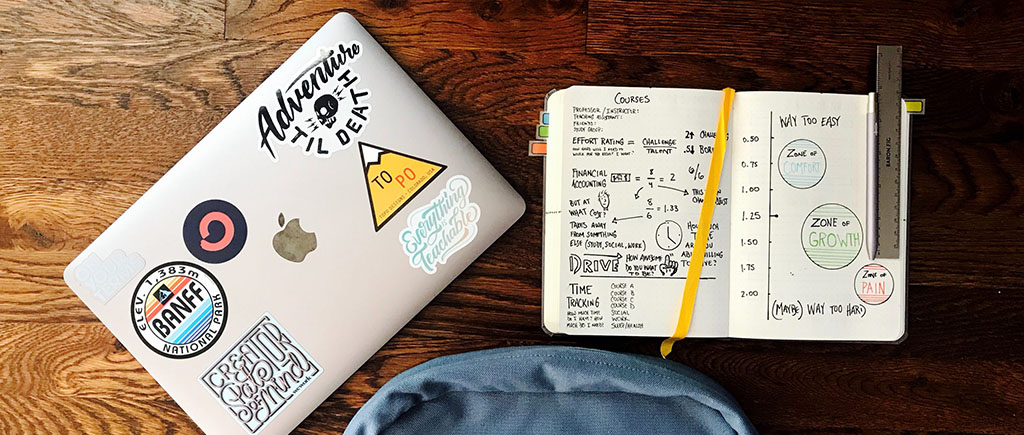 Adventure
TIL DEATH
TO
PO
TOPO DESIGNS · COLORADO, USA
Everything
is
Teachable
ELEV. 1,383m
BANFF
NATIONAL PARK
CREATOR
IS A
State
OF
mind
COURSES
PROFESSOR / INSTRUCTOR:
TEACHING ASSISTANT:
FRIENDS:
STUDY GROUP:
EFFORT RATING = CHALLENGE
TALENT
FINANCIAL
ACCOUNTING
= 8
4
= 2
6/6
BUT AT
WHAT COST?
8
6
= 1.33
TAKES AWAY
FROM SOMETHING
ELSE (STUDY, SOCIAL, WORK)
DRIVE
HOW AWESOME
DO YOU WANT
TO BE?
TIME
TRACKING
HOW MUCH TIME
DO I HAVE? HOW
MUCH DO I NEED?
COURSE A
COURSE B
COURSE C
COURSE D
SOCIAL
WORK
SLEEP/HEALTH
WAY TOO EASY
0.50
0.75
1.00
1.25
1.50
1.75
2.00
ZONE OF
COMFORT
ZONE OF
GROWTH
ZONE OF
PAIN
(MAYBE) WAY TOO HARD
BARON FIG